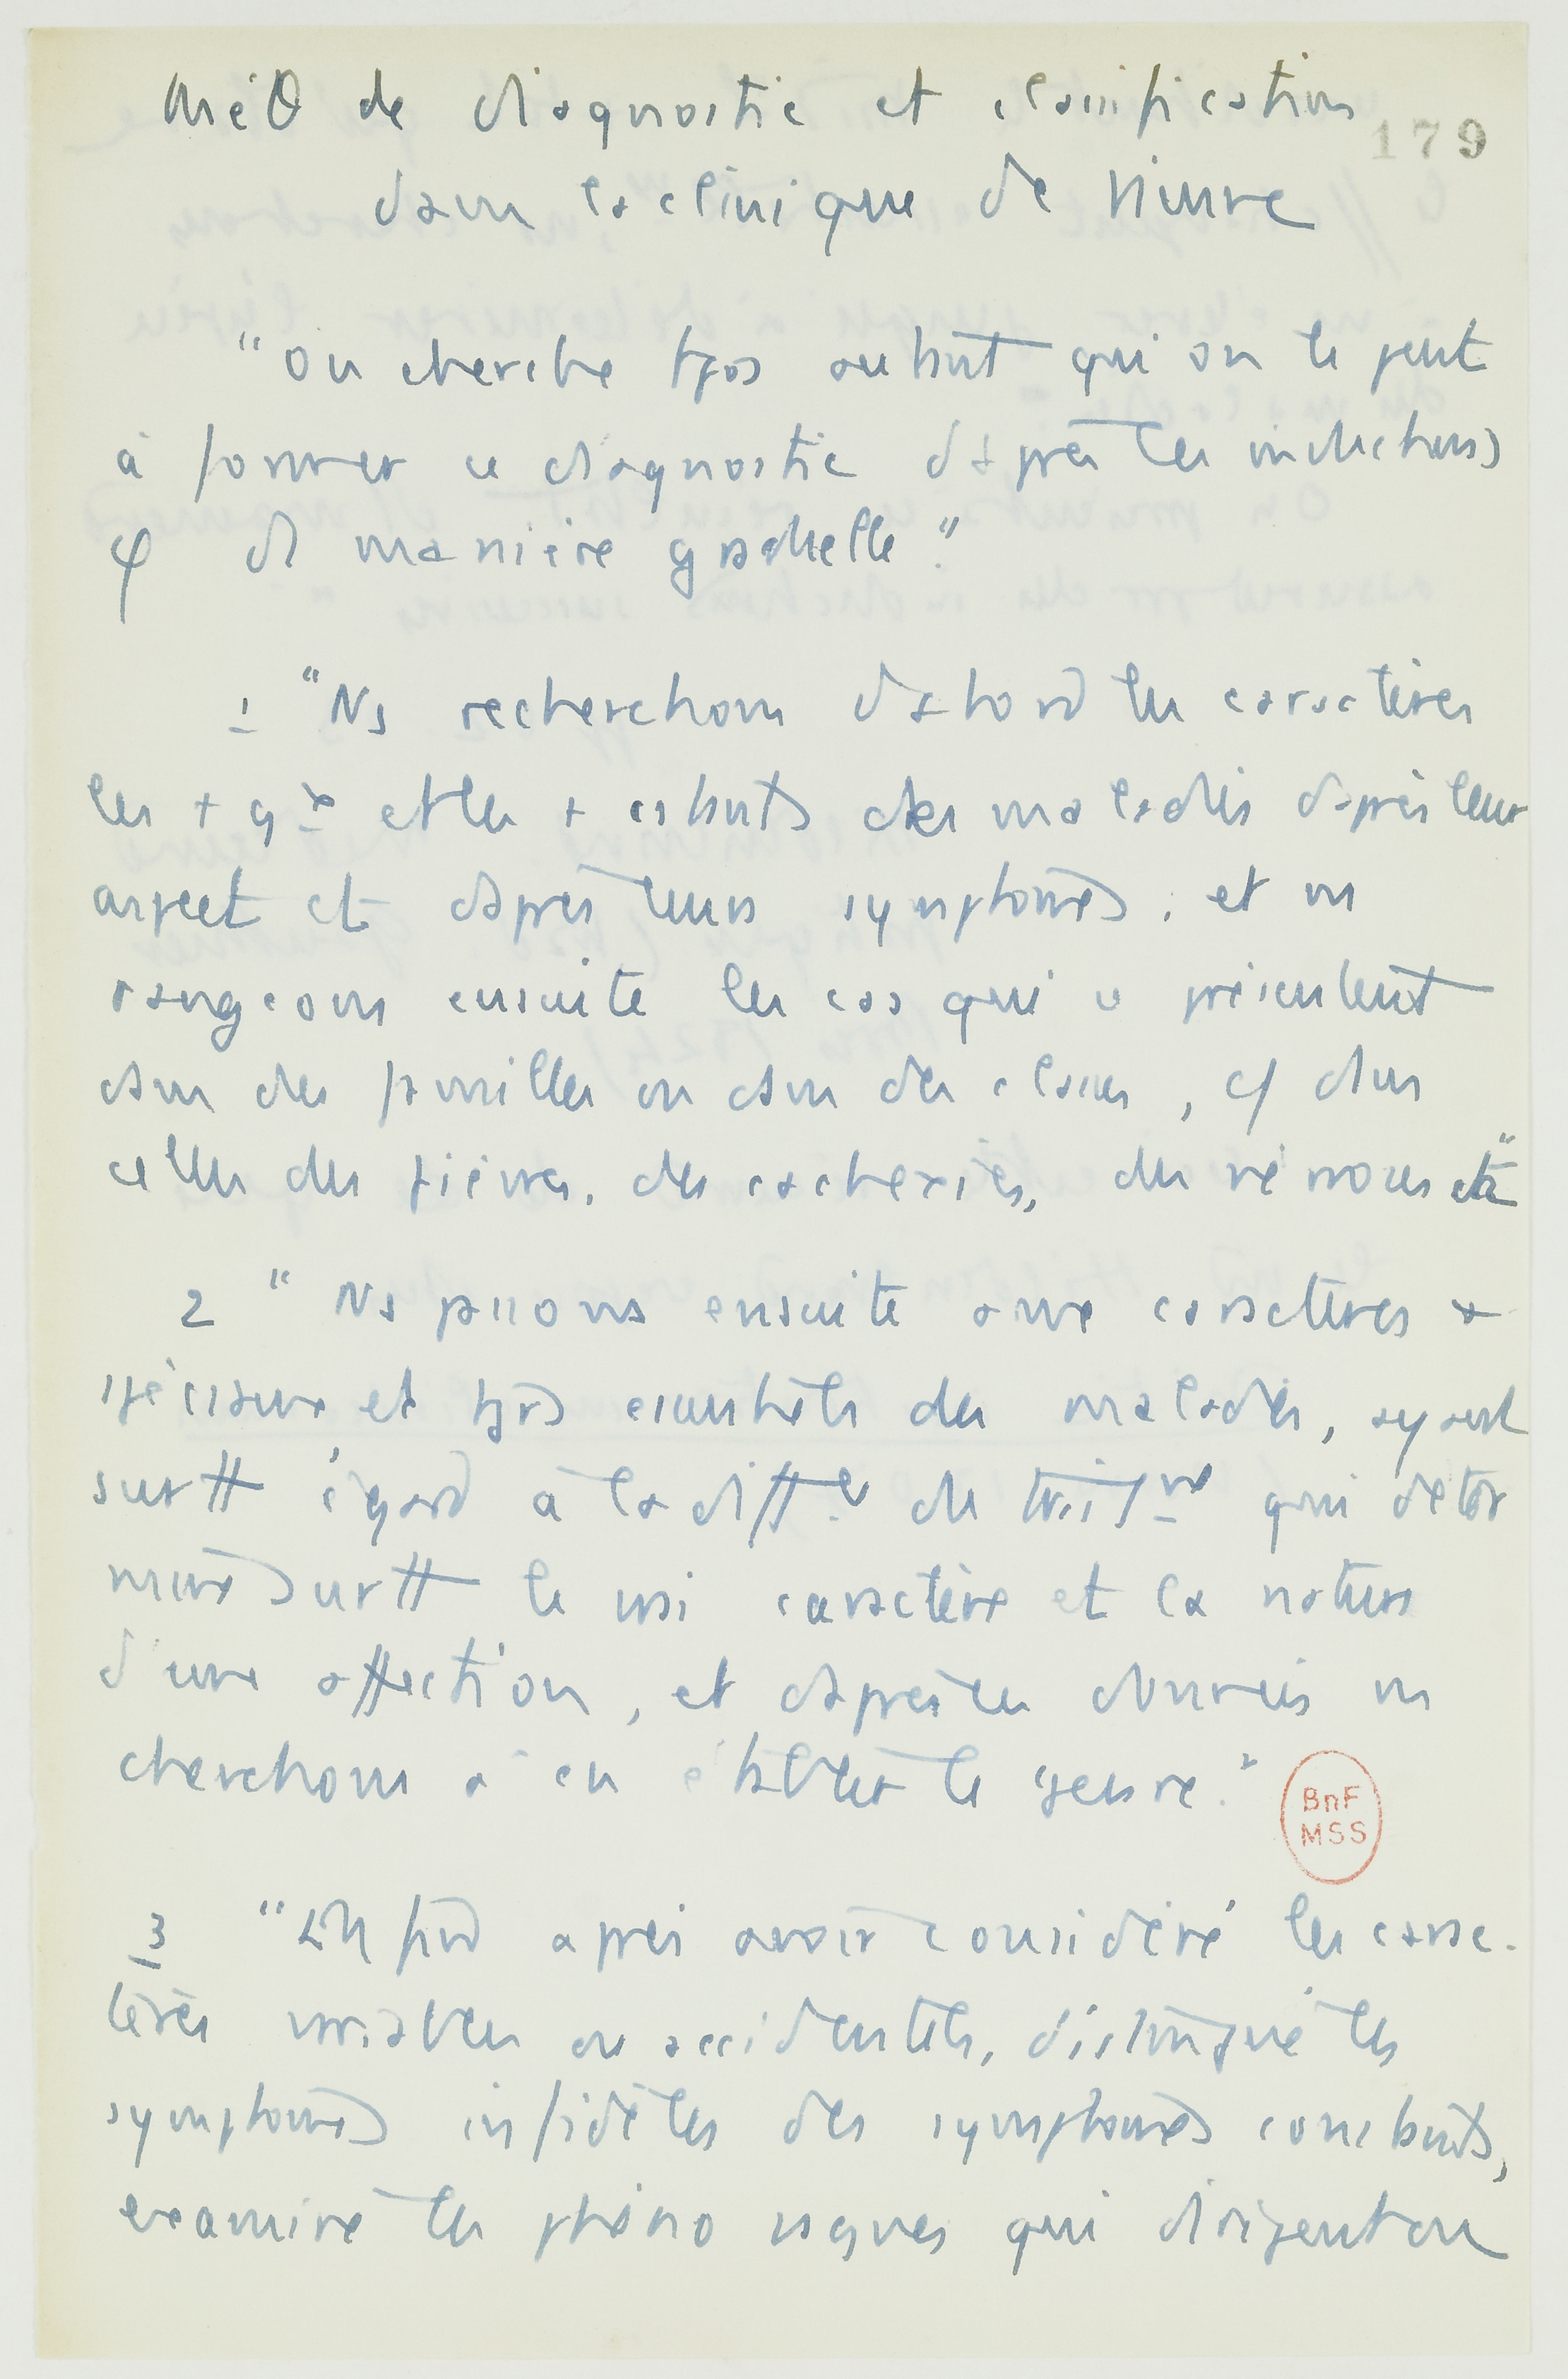 Méθ de diagnostic et classification
179
dans la clinique de Vienne
"On cherche tjos autant qui on le peut
à former ce diagnostic d'après les inductions
φ de manière graduelle."
1 "Ns recherchons d'abord les caractères
les + gx et les + cstants des maladies d'après leur
aspect et d'après leurs symptomes ; et ns
rangeons ensuite les cas qui se présentent
dans des familles ou dans des classes, cf dans
celles des fièvres, des cachexies, des névroses etc"
2 "Ns passons ensuite aux caractères +
spéciaux et tjos essentiels des maladies, ayant
surtt égard à la diffce du qui déter
mine surtt le vrai caractère et la nature
d'une affection, et d'après ces données ns
cherchons à en établir le genre."
BnF
MSS
3 "Enfin après avoir considéré les carac-
tères variables ou accidentels, distingué les
symptomes infidèles des symptomes constants,
examiné les phéno vagues qui dirigent ou